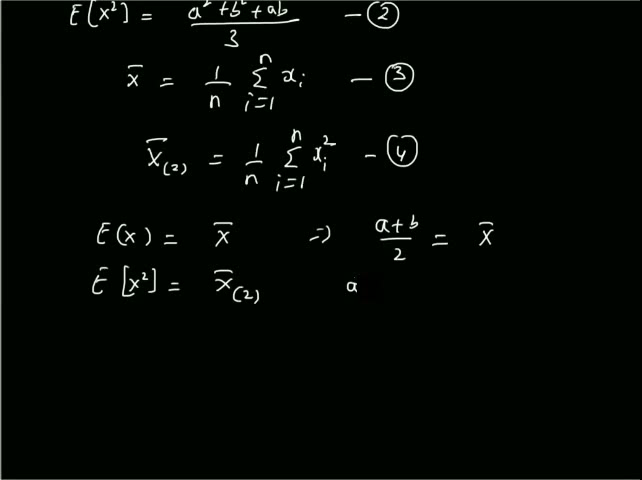 E[x²] = a² + b² + ab / 3 — ②
x̄ = 1/n ∑ⁿᵢ₌₁ xᵢ — ③
x̄₍₂₎ = 1/n ∑ⁿᵢ₌₁ xᵢ² — ④
E(x) = x̄ ⇒ a+b / 2 = x̄
E[x²] = x̄₍₂₎ a